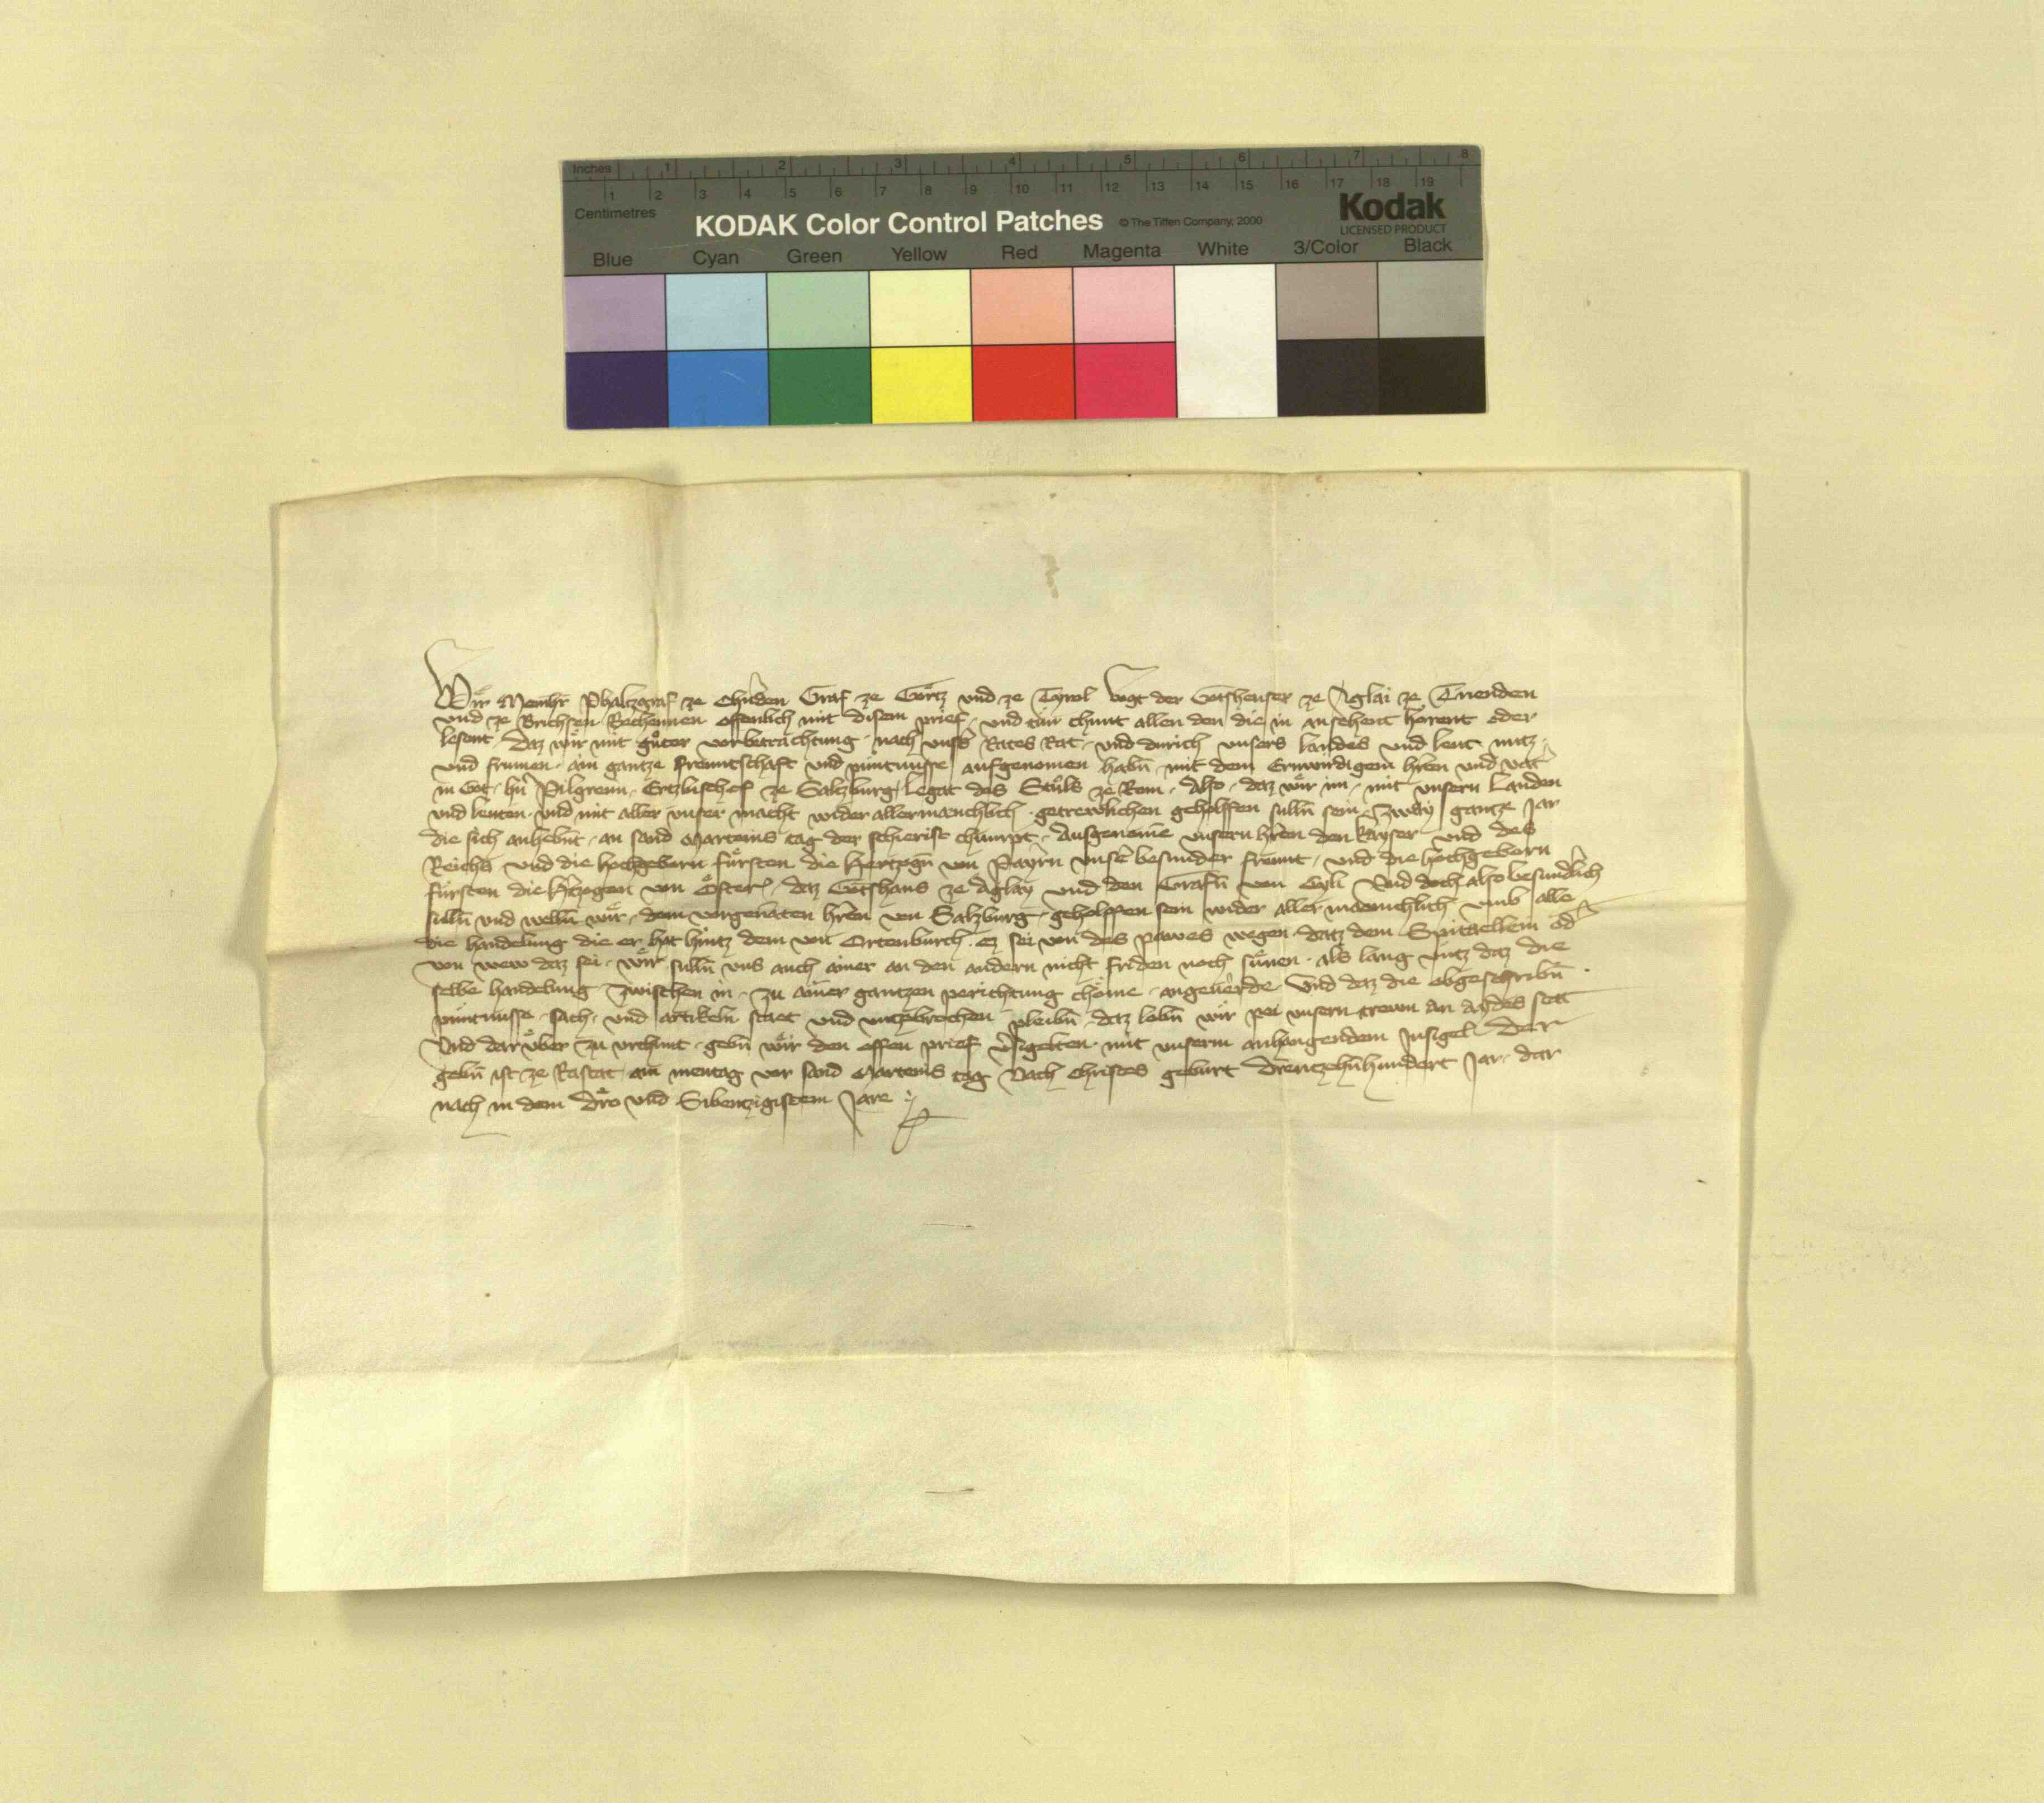 Inches 1 2 3 4 5 6 7 8
1 2 3 4 5 6 7 8 9 10 11 12 13 14 15 16 17 18 19
Centimetres
KODAK Color Control Patches © The Tiffen Company, 2000
Kodak
LICENSED PRODUCT
Blue Cyan Green Yellow Red Magenta White 3/Color Black
Wir Meinhr Phaltzgraf ze Graf ze Görtz vnd ze Tyrol Vogt der Gotsheuser ze Aglai ze Trienden
vnd ze Brichsen Bechennen offenlich mit disem prief, vnd tůn chunt allen den die in ansehent hörent oder
lesent, daz wir mit gůter vorbetrachtung, nach vnsers Rates Rat, vnd durich vnsers landes vnd leut nutz,
vnd frumen, ain gantze freuntschaft vnd püntnusse aufgenomen habn̄, mit dem Erwirdigem hren vnd vat
in Got, hn̄ Pilgreim, Ertzbischof ze Salzburg, legat des Stůls ze Rom, Also, daz wir im, mit vnsern Landen
vnd leuten, vnd mit aller vnser macht wider allermanchlich, getrewlichen geholffen sulln̄ sein, Zway gantze Jar
die sich anhebnt, an sand Marteins tag der schierist chumpt, Ausgenome vnsern hren den kayser vnd des
Reichs vnd die hochgeborn fürsten die Hertzogn̄ von Payrn vnser besunder freunt, vnd die hochgeborn
fürsten die Htzogen von Öster, daz Gotshaus ze Aglay vnd den Grafn̄ von Cyli Vnd doch also besundlich
sulln̄ vnd welln̄ wir, dem vorgenaten hren von Salzburg, geholffen sein wider aller maenichlich vmb alle
die handelung die er hat hintz dem von Ortenburch, ez sei von des pawes wegen, datz dem Spitaellein od
von wew daz sei, wir sulln̄ vns auch ainer an den andern nicht friden noch sünen, als lang vntz daz die
selbe handelung zwischen in, zu ainer gantzen perichtung chöme, angeuerde Vnd daz die obgeschribn̄
püntnusse, sach, vnd artikeln staet vnd vntzebrochen pleibn̄, daz lobn̄ wir pei vnsern trewn an aydes stat
Vnd darüber zu vrchunt, gebn̄ wir den offen prief vsigelten, mit vnserm anhangendem Insigel Der
gebn̄ ist ze Rastat am mentag vor sand Marteins tag Nach Christes geburt Dreuzehnhundert Jar, dar
nach in dem dro vnd Sibentzigistem Jare